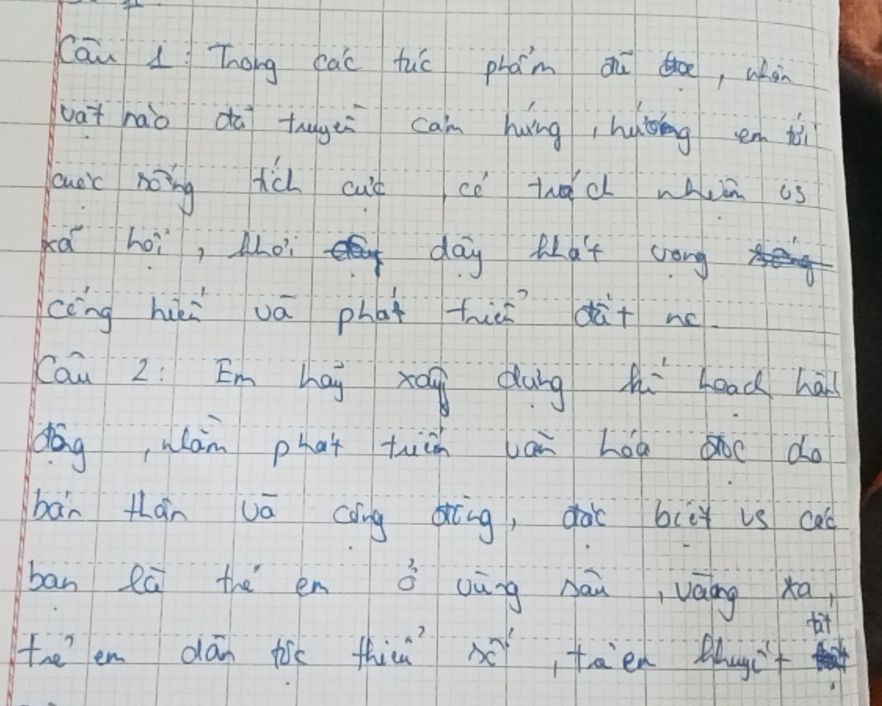 Câu 1: Trong các tác phẩm đã đọc, nhân
vật nào đã truyền cảm hứng, hướng em tới
cuộc sống tích cực, có trách nhiệm vs
xã hội, khơi dậy khát vọng
cống hiến và phát triển đất nc.
Câu 2: Em hãy xây dựng kế hoạch hành
động, nhằm phát triển văn hóa đọc cho
bản thân và cộng đồng, đặc biệt vs các
bạn là trẻ em ở vùng sâu, vùng xa,
trẻ em dân tộc thiểu số, trẻ em khuyết tật